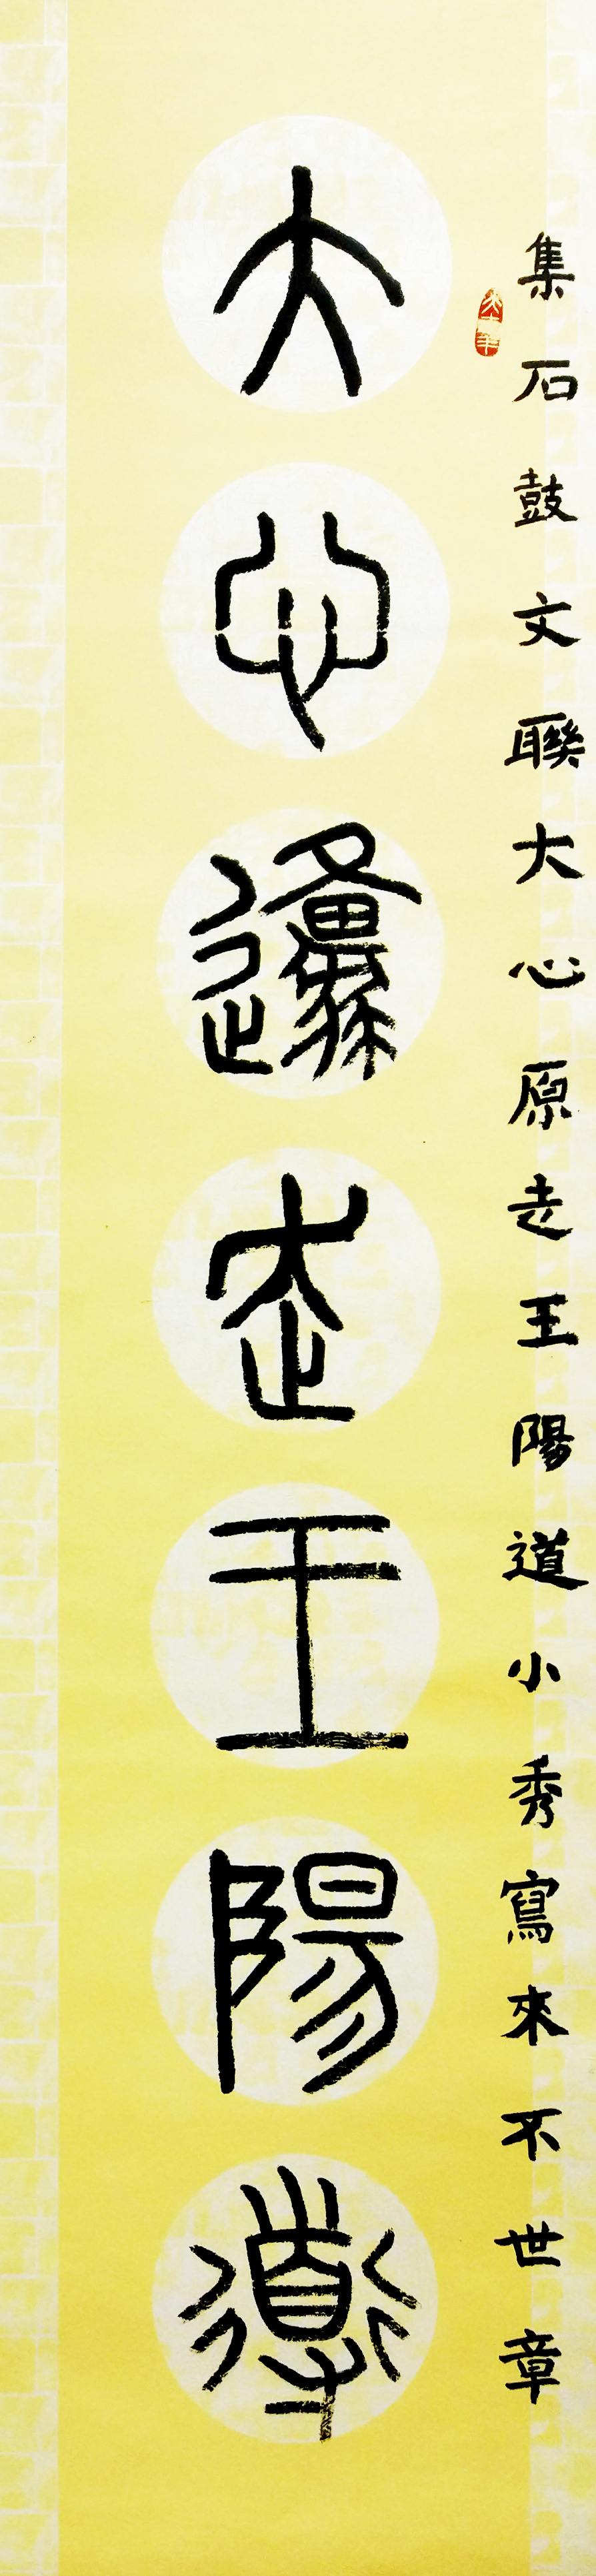 集石鼓文聯大心原走王陽道小秀寫來不世章
大心邍走王陽道